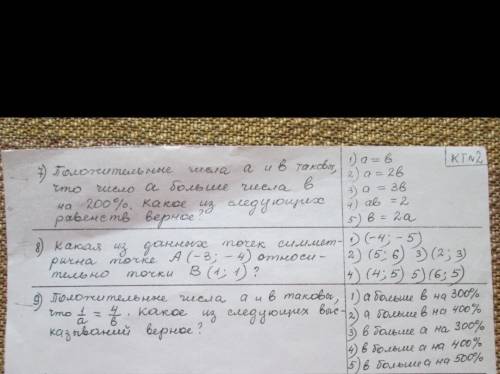 КТ№2
7) Положительные числа а и в таковы,
что число а больше числа в
на 200%. Какое из следующих
равенств верное?
1) а = в
2) а = 2в
3) а = 3в
4) ав = 2
5) в = 2а
8) Какая из данных точек симмет-
рична точке А (-3; -4) относи-
тельно точки В (1; 1)?
1) (-4; -5)
2) (5; 6) 3) (2; 3)
4) (4; 5) 5) (6; 5)
9) Положительные числа а и в таковы,
что 1/а = 4/в. Какое из следующих выс-
казываний верное?
1) а больше в на 300%
2) а больше в на 400%
3) в больше а на 300%
4) в больше а на 400%
5) в больше а на 500%